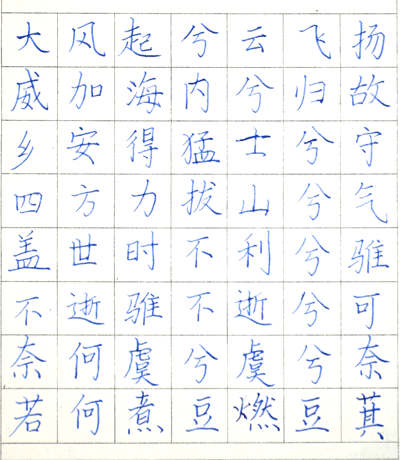 大风起兮云飞扬
威加海内兮归故
乡安得猛士兮守
四方力拔山兮气
盖世时不利兮骓
不逝骓不逝兮可
奈何虞兮虞兮奈
若何煮豆燃豆萁